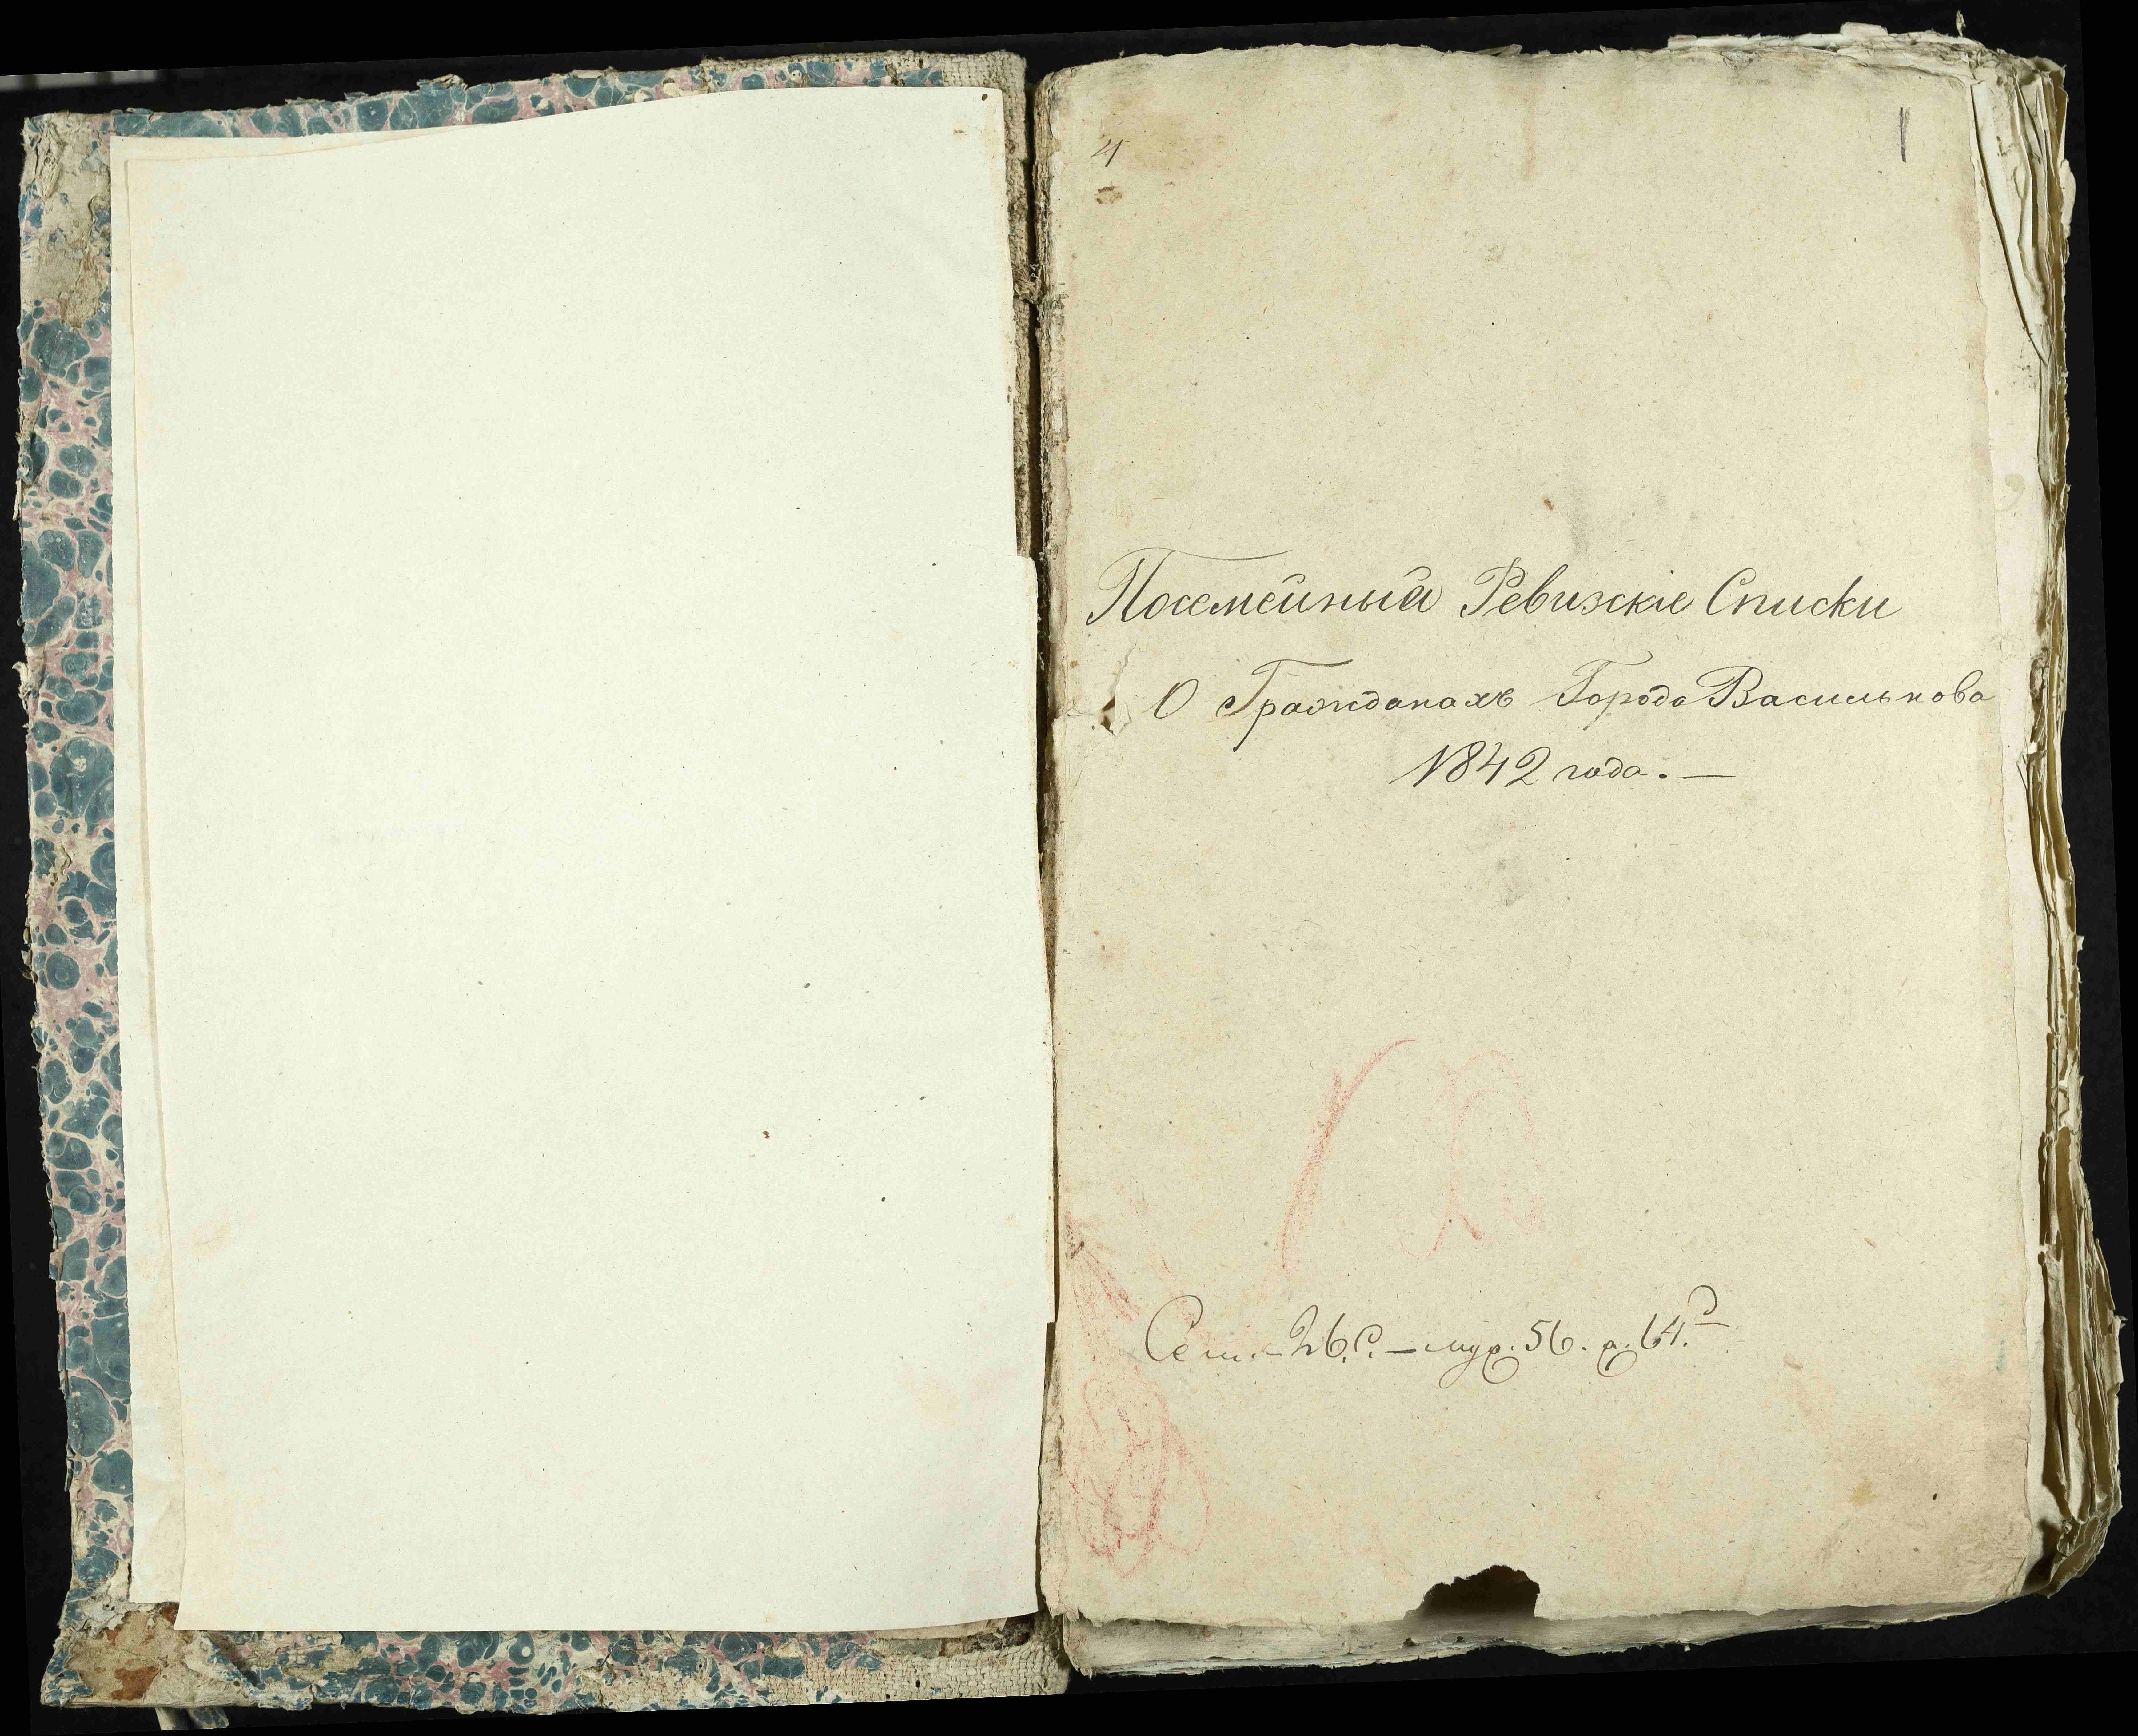 4
1
Посемейныя Ревизскіе Списки
О Гражданахъ Города Василькова
1842 года. —
Сем. — 26. С. — муж. 56. ж. 64.